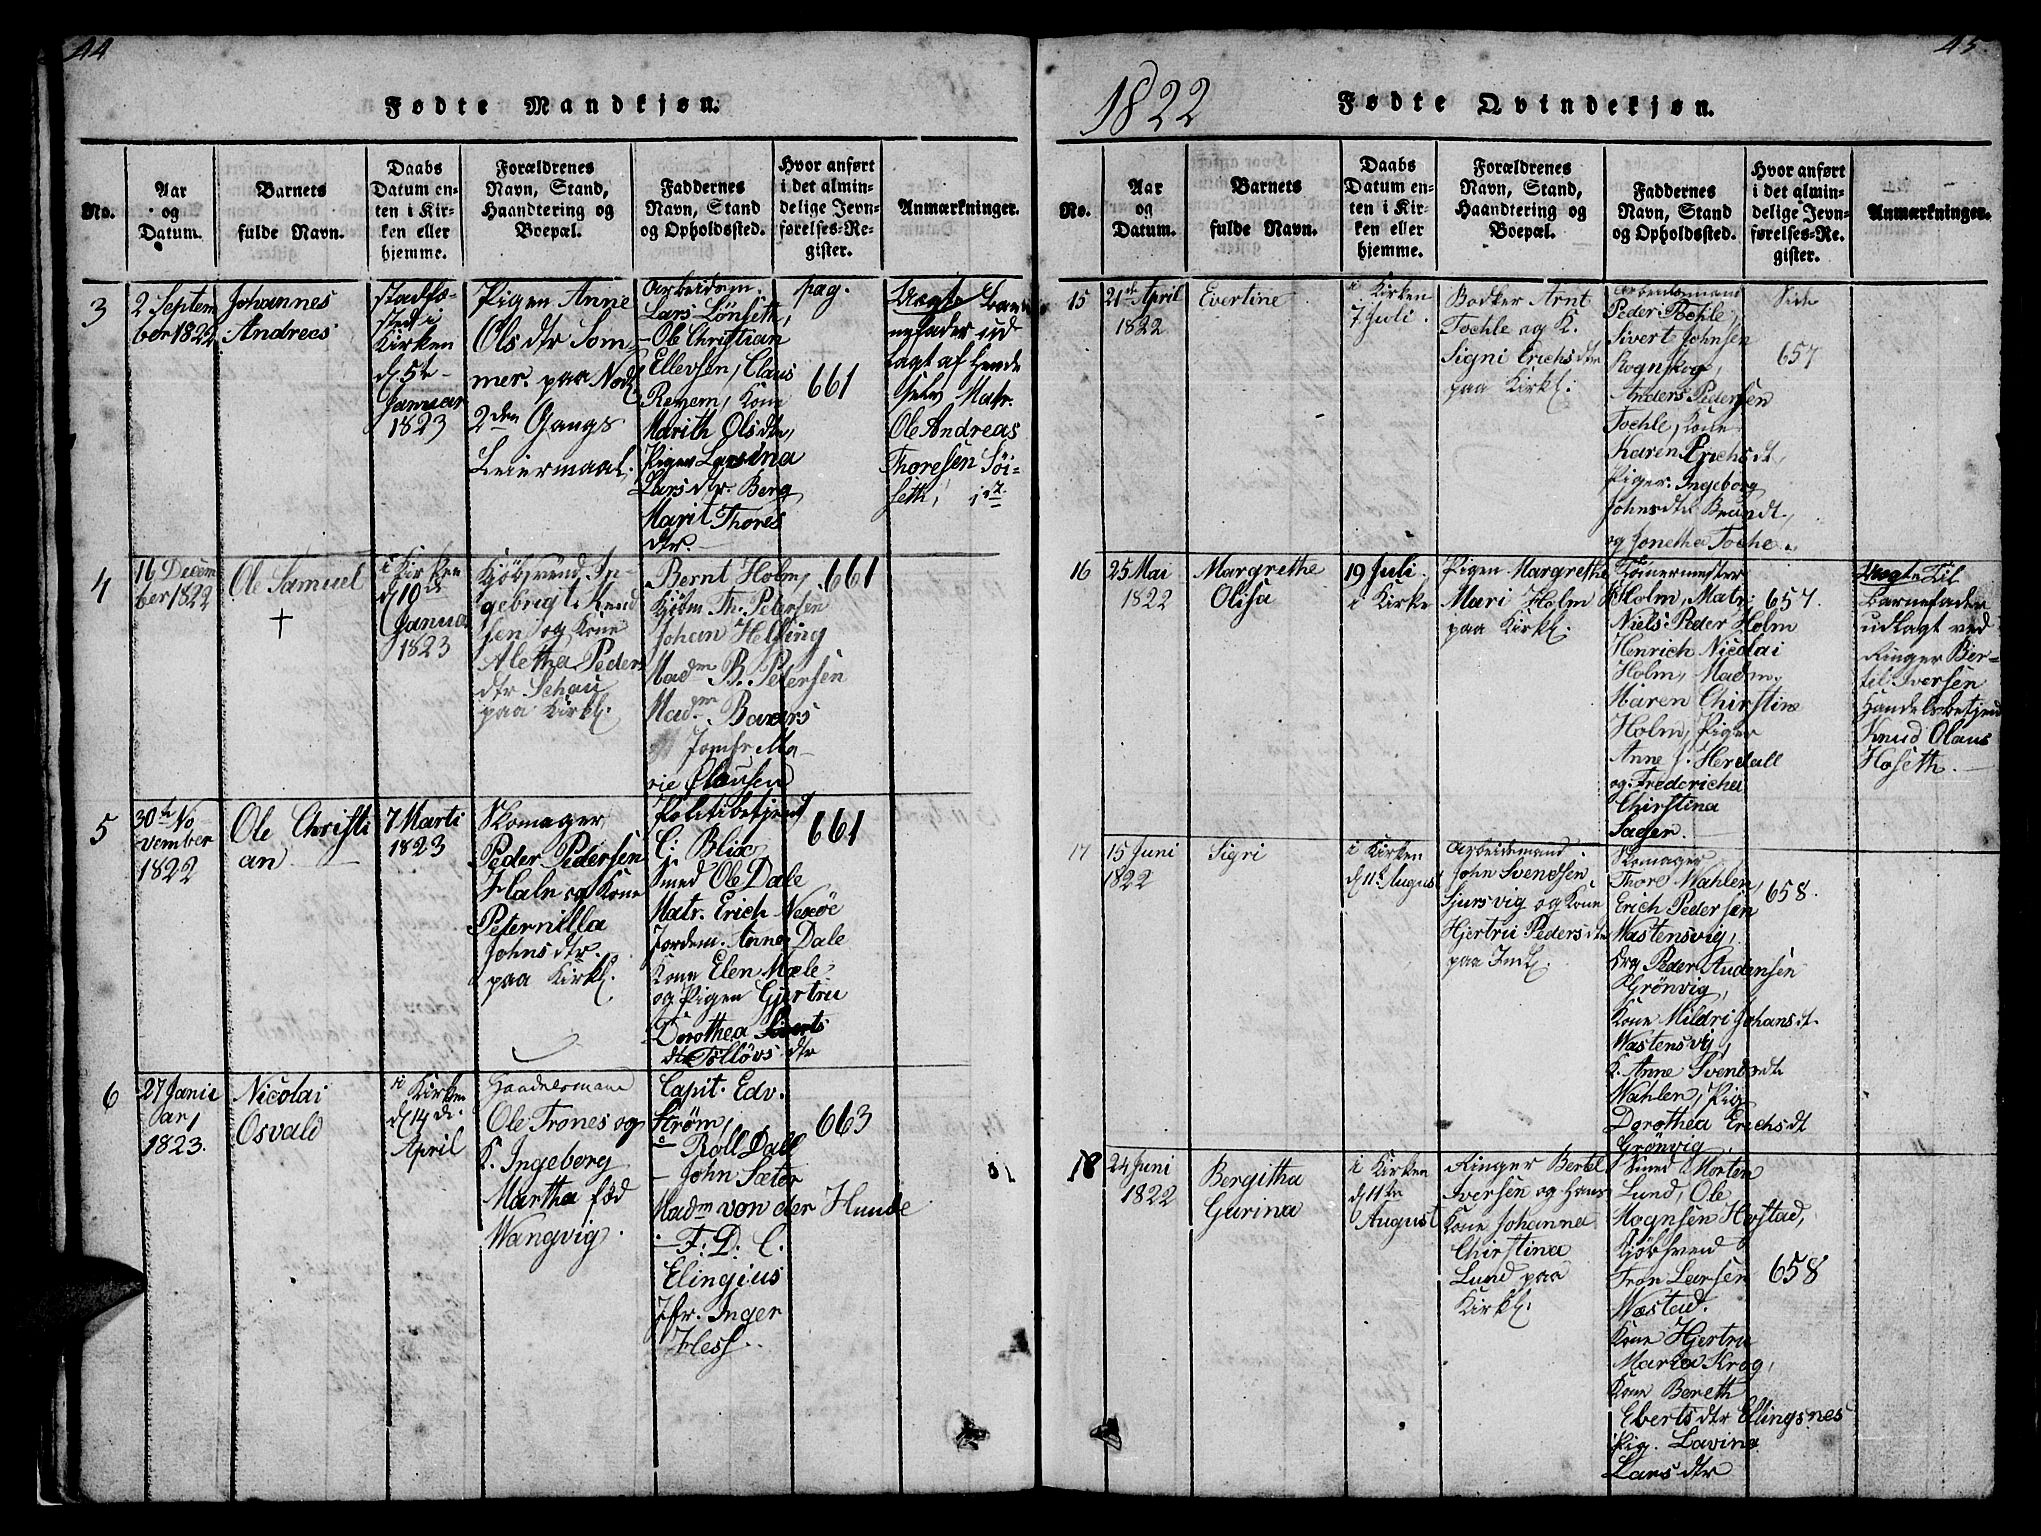 44
Fødte Mandkjøn.
No.
Aar
og
Datum.
Barnets
fulde Navn.
Daabs
Datum en-
ten i Kir-
ken eller
hjemme.
Forældrenes
Navn, Stand,
Haandtering og
Boepæl.
Faddernes
Navn, Stand
og Opholdssted.
Hvor anført
i det almin-
delige Jevn-
førelses-Re-
gister.
Anmærkninger.
3
2 Septem
ber 1822
Johannes
Andreas
stadfæ-
sted i
Kirken
d. 5te
Januar
1823
Pigen Anne
Olsdtr Som-
mer. paa Nodl.
2den Gangs
Leiermaal.
Arbeidsm.
Lars Lönseth,
Ole Christian
Ellevsen, Claus
Remem, Kone
Marith Olsdtr,
Pigen Larsina
Larsdtr. Berg
Marit Thores
dtr.
pag.
661
Uægte Bar-
nefader ud
lagt af hende
selv Matr.
Ole Andreas
Thoresen Söi-
seth,
4
16 Decem
ber 1822
Ole Samuel
+
i Kirken
d 10de
Janua
1823
Kjöbsvend In-
gebrigt Knud
sen og Kone
Aletha Peders
dtr Schau
paa Kirkl.
Bernt Holm,
Kjöbm Th. Petersen
Johan Helsing
Madm B. Petersen
Madm Bavers
Jomfr Ma-
rie Clausen
661
5
30te No
vember
1822
Ole Christi
an
7 Marti
1823
Skomager
Peder Pedersen
Haln og Kone
Peternilla
Johnsdtr.
paa Kirkl.
Politibetjent
C. Blix
Smed Ole Dale
Matr. Erich Nesöe
Jordem. Anne Dale
Kone Elen Mæle
og Pigen Gjertru
Dorothea
Tollövsdtr
661
6
27 Janu
ar,
1823.
Nicolai
Osvald
i Kirken
d 14 de
April
Handelsmand
Ole Trones og
K. Ingeborg
Martha föd
Wangvig.
Capit. Edv.
Ström,
Roll Dall
John Sæter
Madm von der Hunde
F. D. C.
Elingius
Jfr. Inger
Hess.
663
45.
1822
Fødte Qvindekjøn.
No.
Aar
og
Datum.
Barnets
fulde Navn.
Daabs
Datum en-
ten i Kir-
ken eller
hjemme.
Forældrenes
Navn, Stand,
Haandtering og
Boepæl.
Faddernes
Navn, Stand
og Opholdssted.
Hvor anført
i det almin-
delige Jevn-
førelses-Re-
gister.
Anmærkninger.
15
21de April
1822
Evertine
i Kirken
7 Juli.
Bödker Arnt
Tochle og K.
Signi Erichsdtr
paa Kirkl.
Arbeidsmand
Peder Tochle,
Sivert Johnsen
Rognskog,
Anders Pedersen
Tochle, Kone
Karen Erichsdt,
Piger. Ingeborg
Johnsdtr Brandt,
og Jonetha Tochle.
Side
657
16
25 Mai
1822
Margrethe
Olisa
19 Juli
i Kirke
Pigen Margrethe
Mari Holm
paa Kirkl.
Tömermester
Holm, Matr:
Niels Peder Holm
Henrich Nicolai
Holm, Madm.
Maren Chirstine
Holm, Piger
Anne S. Herdall
og Fredericha
Chirstina
Sager.
657.
Uægte Til
Barnefader
udlagt ved
Ringer Ber-
til Iversen
Handelsbetjent
Knud Olaus
Hoseth.
17
15 Juni
1822
Sigri
i Kirken
d 11te August
Arbeidsmand
John Svendsen
Sjursvig og Kone
Hjertru Pedersdtr
paa Iml.
Skomager
Thore Wahlen,
Erich Pedersen
Wastensvig,
Drg Peder Andersen
Grönvig,
Kone Mildri Johansdt.
Wastensvig,
K. Anne Svendsdtr
Wahlen, Pig
Dorothea Erichsdt
Grönvig
658.
18
24 Juni
1822
Bergitha
Gurina
i Kirken
d 11te
August
Ringer Bertel
Iversen og Hans
Kone Johanna
Chirstina
Lund paa
Kirkl.
Smed Morten
Lund, Ole
Mognsen Herstad,
Kjöbsvend
Tron Larsen
Wæstad.
Kone Hjertru
Maria Krog,
Kone Bereth
Ebertsdtr Ellingsnes
Pig. Lavina
Larsdtr
658